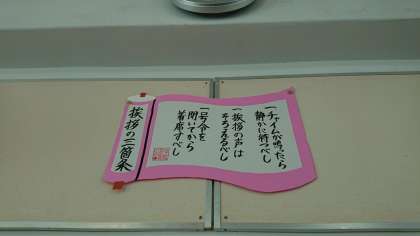 一チャイムが鳴ったら
静かに待つべし
一挨拶の声は
そろえるべし
一号令を
聞いてから
着席すべし
挨拶の三箇条